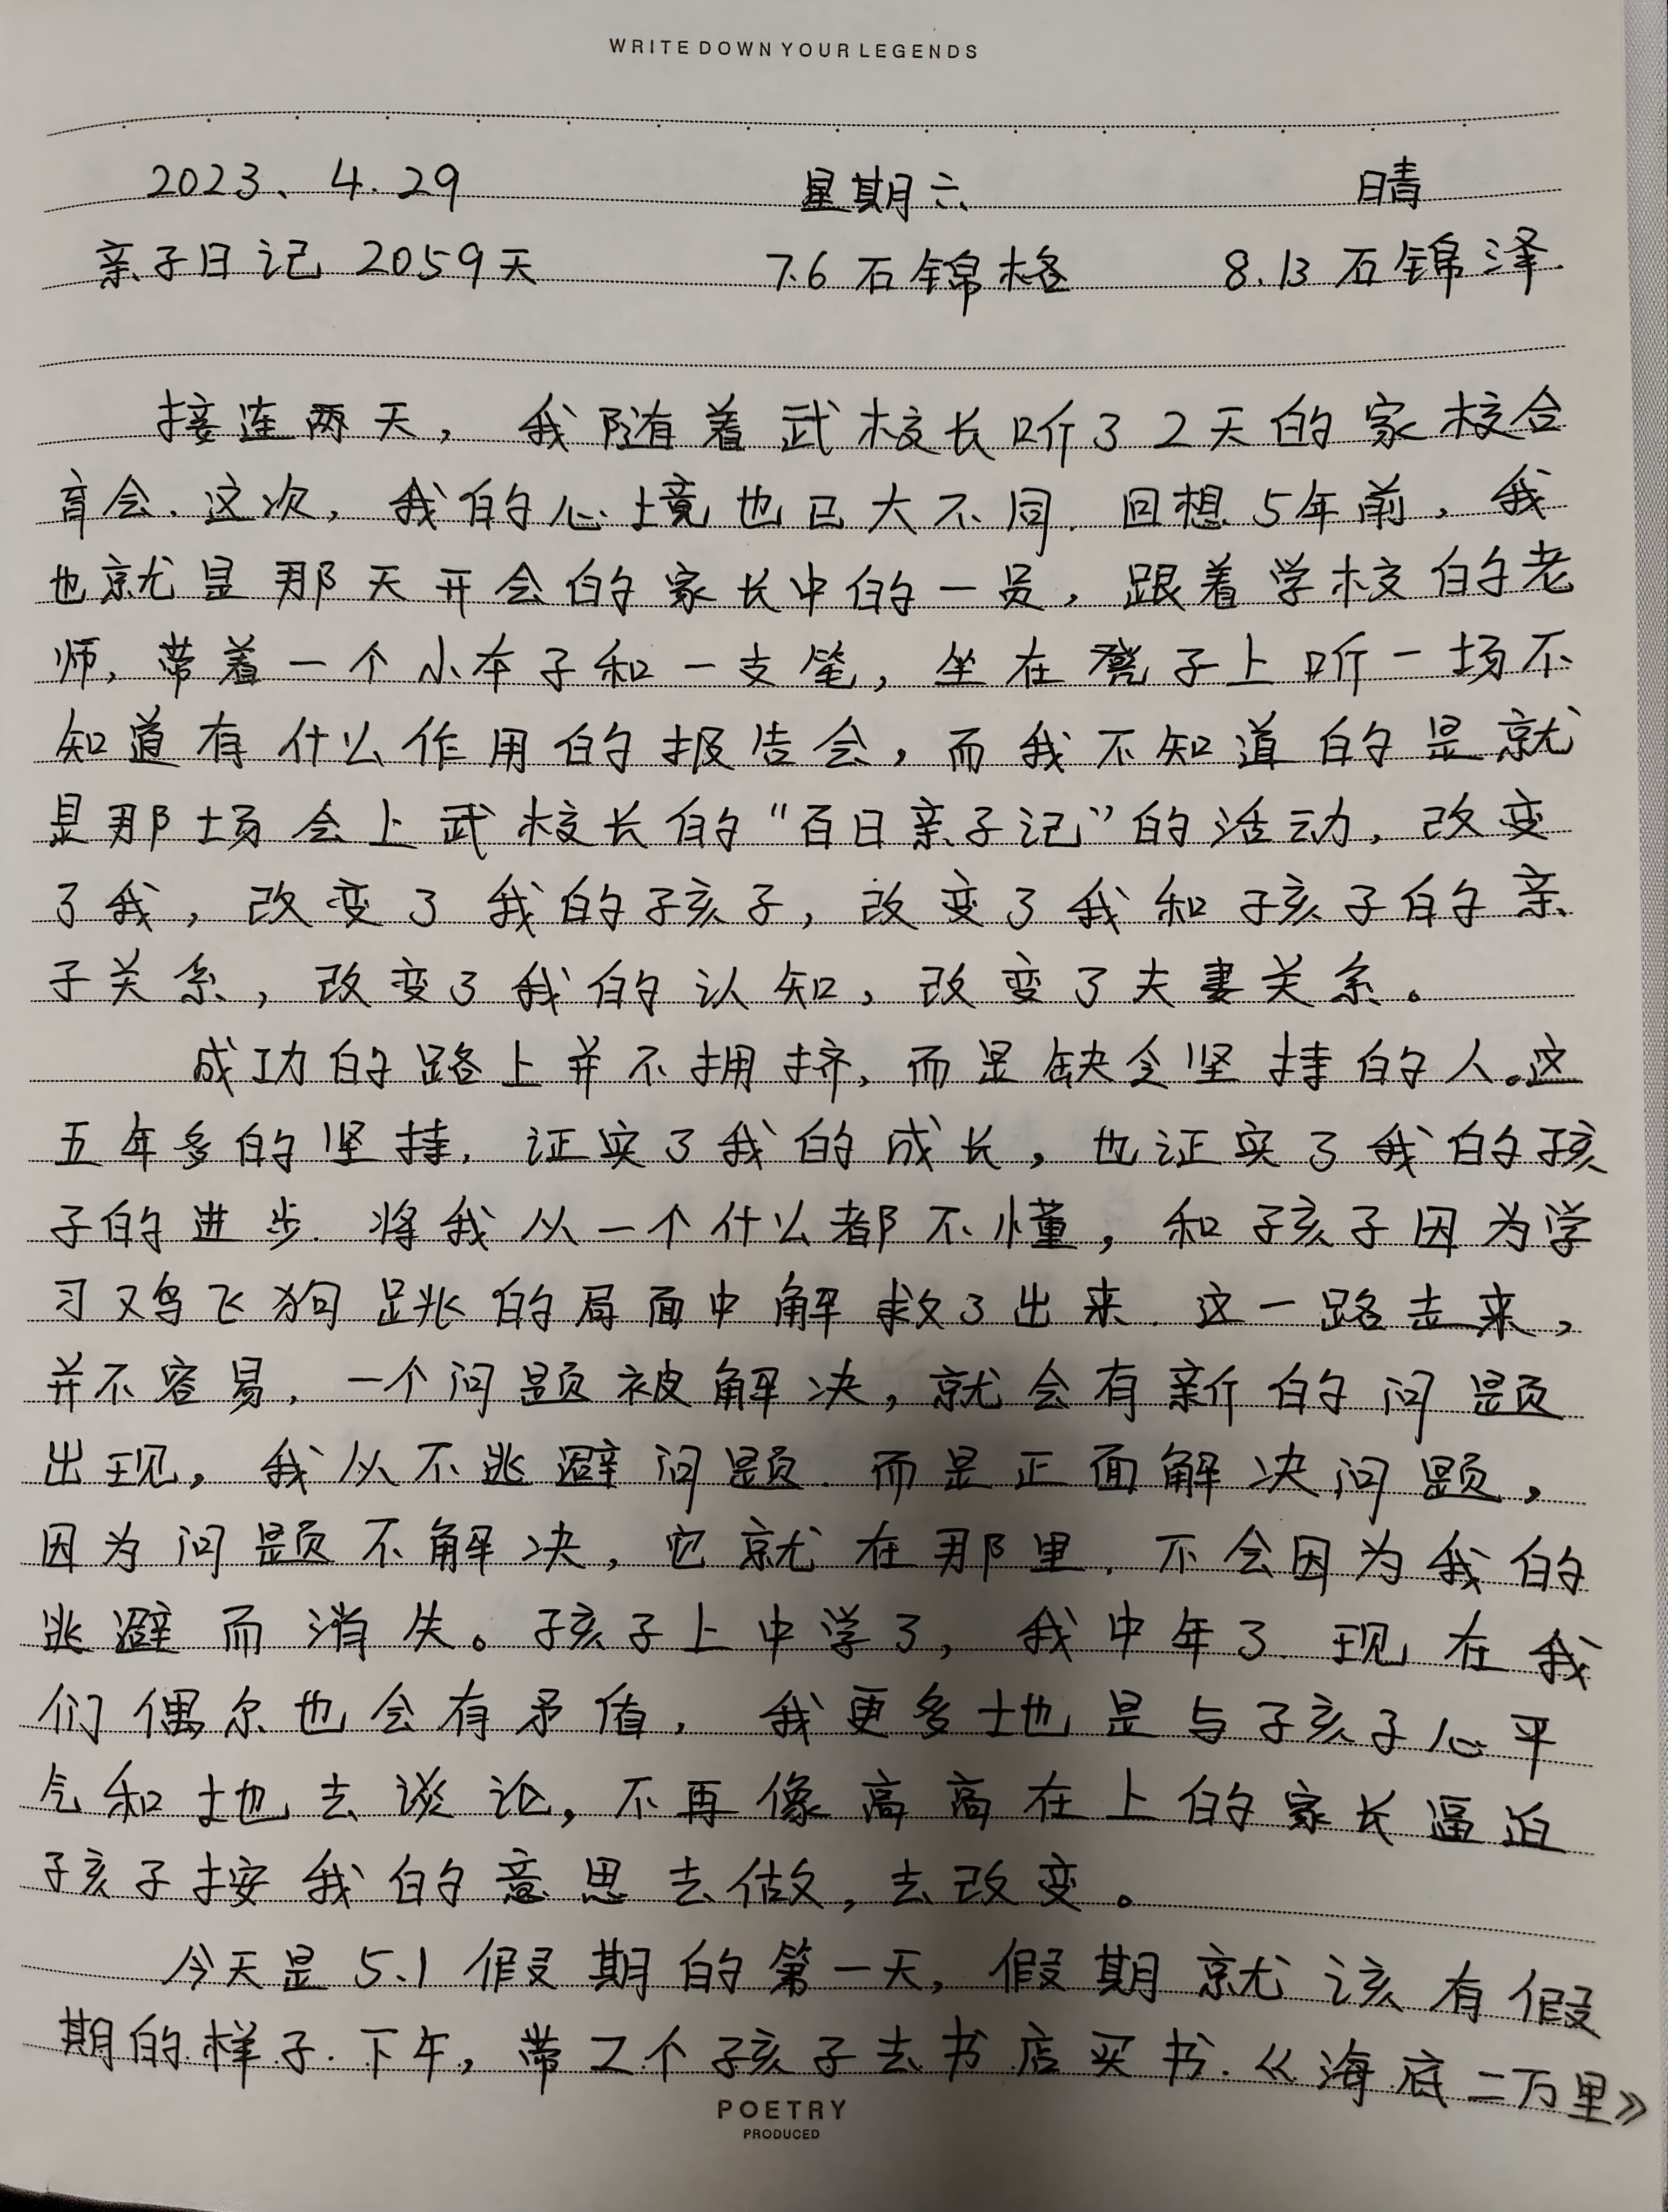 WRITE DOWN YOUR LEGENDS
2023、4.29 星期六 晴
亲子日记 2059天 7.6 石锦格 8.13 石锦泽
接连两天，我随着武校长听了2天的家校合
育会.这次，我的心境也已大不同.回想5年前，我
也就是那天开会的家长中的一员，跟着学校的老
师，带着一个小本子和一支笔，坐在凳子上听一场不
知道有什么作用的报告会，而我不知道的是就
是那场会上武校长的“百日亲子记”的活动，改变
了我，改变了我的孩子，改变了我和孩子的亲
子关系，改变了我的认知，改变了夫妻关系。
成功的路上并不拥挤，而是缺令坚持的人。这
五年多的坚持，证实了我的成长，也证实了我的孩
子的进步.将我从一个什么都不懂，和孩子因为学
习鸡飞狗跳的局面中解救了出来.这一路走来，
并不容易，一个问题被解决，就会有新的问题
出现，我从不逃避问题.而是正面解决问题，
因为问题不解决，它就在那里.不会因为我的
逃避而消失。孩子上中学了，我中年了.现在我
们偶尔也会有矛盾，我更多地是与孩子心平
气和地去谈论，不再像高高在上的家长逼迫
孩子按我的意思去做，去改变。
今天是5.1假期的第一天，假期就该有假
期的样子.下午，带2个孩子去书店买书.《海底二万里》
POETRY
PRODUCED